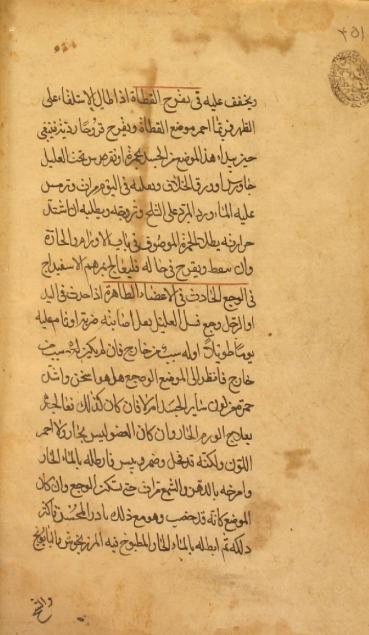 ٢٥١
ويخفف عليه في تقرح القطاة اذا طال الاستلقاء على
الظهر فربما احمر موضع القطاة وتقرح قروحا رديئة فينبغي
حين يبدأ هذا الموضع من الجسد يحمر ان تفرش تحت العليل
ورق الخلاف وتقلبه في اليوم مرات وترش
عليه الماورد المبرد على الثلج وتروحه وتقلبه ان اشتد
حرارته بطلى الحمرة الموصوف في باب الاورام الحارة
وان سقط وتقرح في حاله فليعالج بمرهم الاسفيداج
في الوجع الحادث في الاعضاء الظاهرة اذا حدث في اليد
او الرجل وجع فسل العليل هل اصابته ضربة او نام عليه
نوما طويلا او له سبب من خارج فان لم يكن له سبب من
خارج فانظر الى الموضع الوجع هل هو اسخن واشد
حمرة من لون ساير الجسد ام لا فان كان كذلك فعالجه
بعلاج الورم الحار وان كان العضو ليس بحار ولا احمر
اللون ولكنه قد نحل وضمر ويبس فانطله بالماء الحار
وامرخه بالدهن والشمع مرات حتى يسكن الوجع وان كان
الموضع كانه قد خصب وهو مع ذلك بارد المجس فاكثر
دلكه ثم انطله بالماء الحار المطبوخ فيه المرزنجوش والبابونج